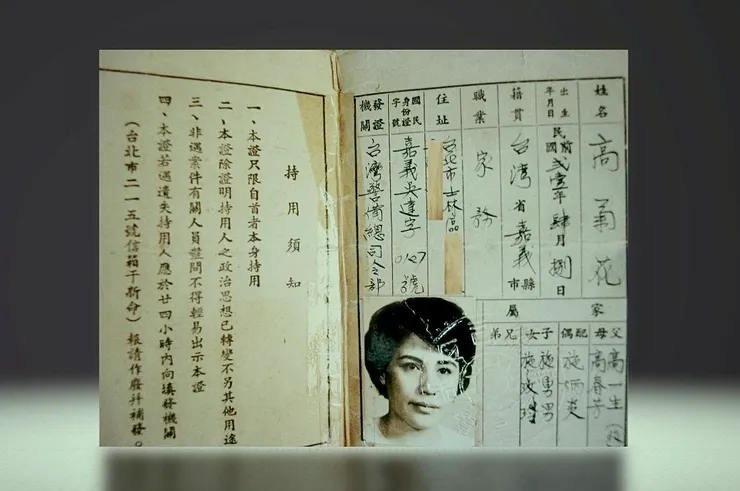 姓名 高菊花
出生年月日 民國前貳壹年肆月捌日
籍貫 台灣省嘉義市縣
職業 家務
住址 台北市士林區
國民身份證字號 嘉義吳達字0127號
發證機關 台灣警備總司令部
家屬
父母 高一生 高春芳
配偶 施炳炎
子女 施勇男
兄弟
持用須知
一、本證只限自首者本身持用
二、本證除證明持用人之政治思想已轉變不另其他用途
三、非遇案件有關人員盤問不得輕易出示本證
四、本證若遇遺失持用人應於廿四小時內向填發機關
（台北市二一五號信箱干斯命）報請作廢并補發。